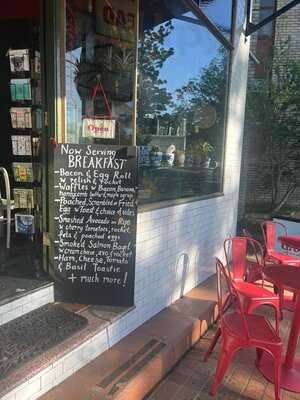 Open
Now Serving
BREAKFAST
- Bacon & Egg Roll
w relish & rocket
- Waffles w Bacon, Banana,
honeycomb butter, maple
- Poached, Scrambled or Fried
Egg w toast & choice of sides
- Smashed Avocado on Rye
w cherry tomatoes, rocket,
feta & poached eggs
- Smoked Salmon Bagel
w cream cheese, avo & rocket
- Ham, Cheese, Tomato
& Basil Toastie
+ much more!